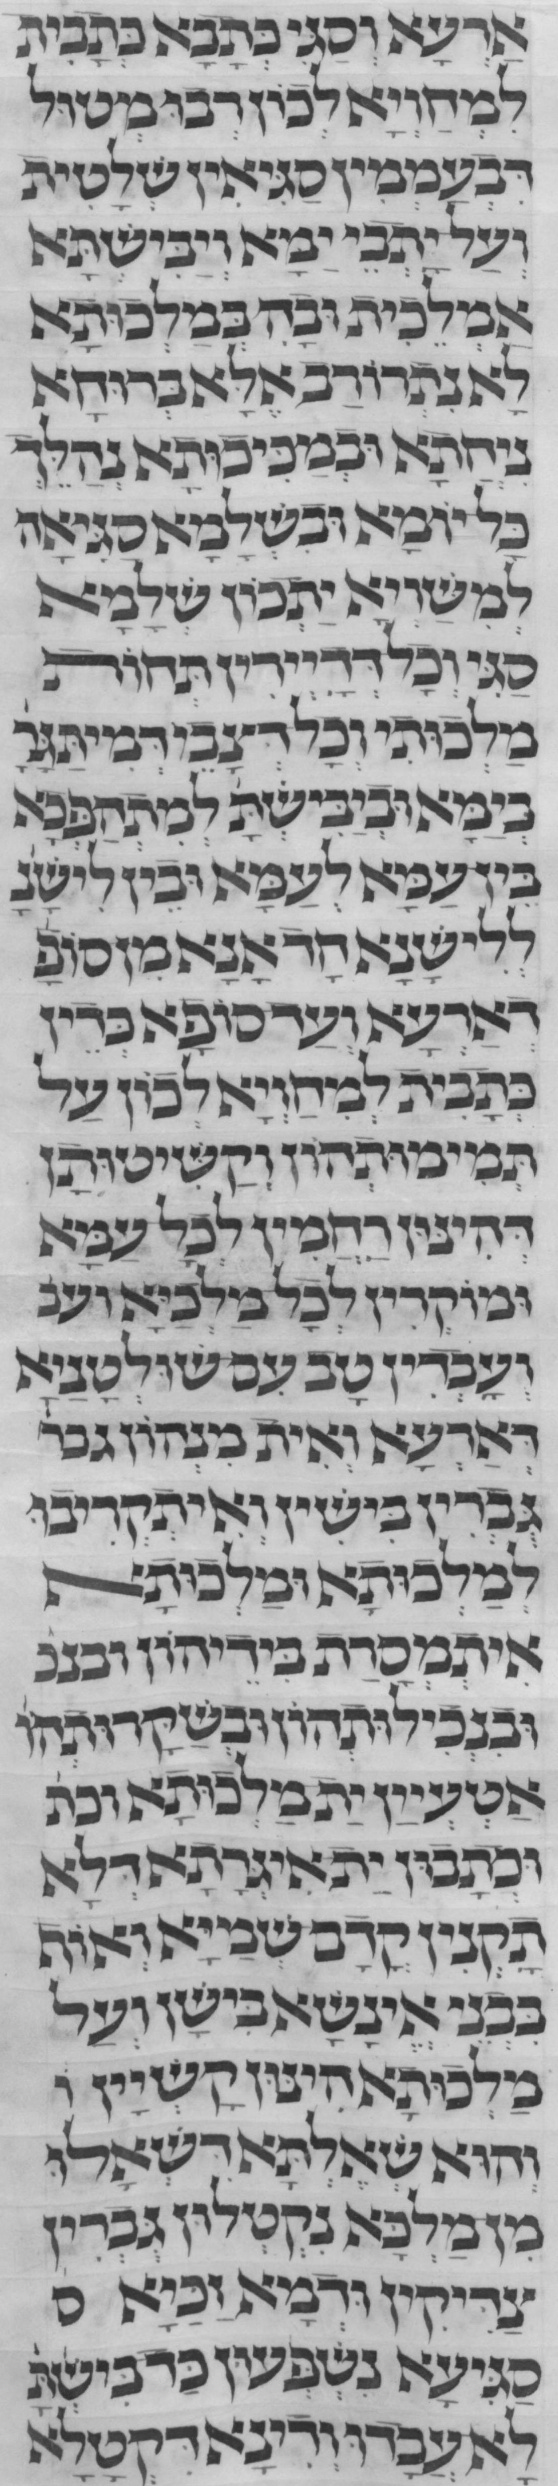 אַרְעָא וְסַגִי כְּתָבָא כְּתָבִית
לְמְחַוְיָא לְכוֹן רְבוּ מְטוּל
דִּבְעַמְמִין סַגִּיאִין שְׁלָטִית
וְעַל יָתְבֵי יַמָא וְיַבִּישְׁתָּא
אַמְלֵכִית וּבָהּ בְּמַלְכוּתָא
לָא נִתְרוֹרַב אֶלָא בְּרוּחָא
נְיְחָתָא וּבְמַכִּיכוּתָא נְהַלֵּךְ
כָּל יוֹמָא וּבִשְׁלָמָא סַגִּיאָה
לְמְשַׁוְיָא יַתְכוֹן שְׁלָמָא
סַגִּי וְכָל דְּדָיְירִין תְּחוֹת
מַלְכוּתִי וְכָל דְּצָבֵי דְּמִיתַּגָּרָ
בְיַמָּא וּבְיַבִּישְׁתָּ לְמִתְהַפְּכָא
בֵּין עַמָּא לְעַמָּא וּבֵין לִישָׁנָ
לְלִישָׁנָא חַד אֲנָא מִן סוֹפָ
דְאַרְעָא וְעַד סוֹפָא כְּדֵין
כְּתָבִית לְמְחַוְיָא לְכוֹן עַל
תְּמִימוּתְהוֹן וְקַשִּׁיטוּתָן
דְּהִינּוּן רַחֲמִין לְכָל עַמָּא
וּמוֹקְרִין לְכָל מַלְכַיָּא ועב
וְעָבְדִין טָב עִם שׁוּלְטָנַיָא
דְּאַרְעָא וְאִית מִנְהוֹן גבר
גֻּבְרִין בִּישִׁין וְאִיתְקְרִיבוּ
לְמַלְכוּתָא וּמַלְכוּתָא
אִיתְמְסָרַת בִּידֵיהוֹן ובנכ
וּבִנְכִילוּתְהוֹן וּבְשַׁקָּרוּתְהוֹ
אַטְעְיַין יַת מַלְכוּתָא וכת
וּכְתָבוּן יַת אִיגְּרָתָא דְּלָא
תָקְנִין קֳדָם שְׁמַיָּא וְאוֹת
בִּבְנֵי אֱינָשָׁא בִּישָׁן וְעַל
מַלְכוּתָא הִינּוּן קָשְׁיָין ו
וְהוּא שְׁאֵלְתָּא דִּשְׁאָלוּ
מִן מַלְכָּא נִקְטְלוּן גֻּבְרִין
צַדִּיקִין וּדְמָא זַכַּיָא ס
סַגִּיעָא נִשְׁפְּעוּן כַּד בִּישְׁתָּ
לָא עֲבָדוּ וְדִינָא דִּקְטָלָא